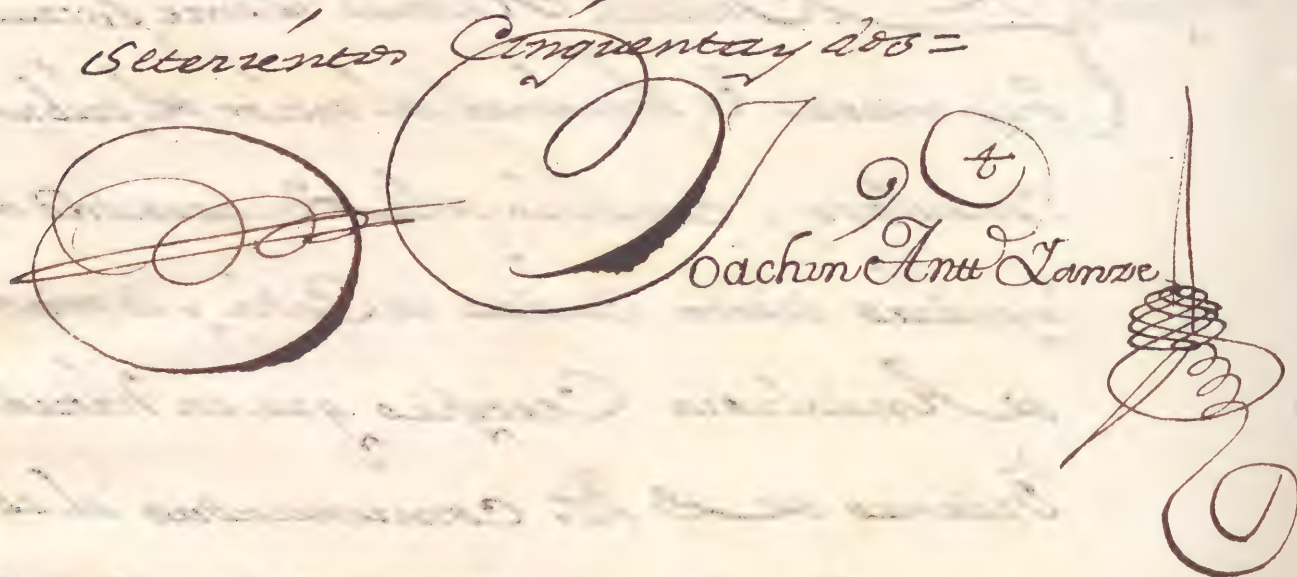 Setezientos Cinquenta y dos =
Joachin Antt